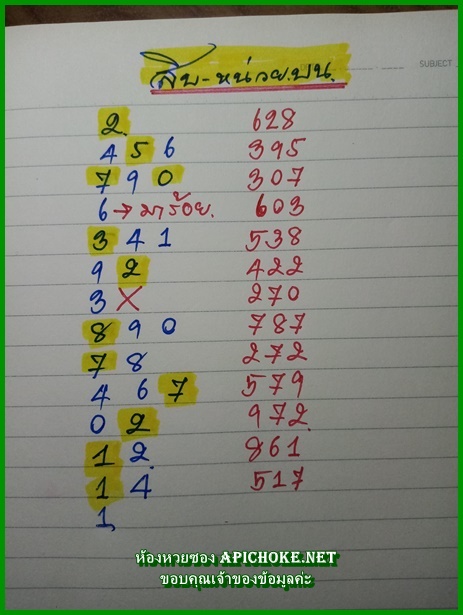 สิบ-หน่วย.บน.
SUBJECT
2. 628
4 5 6 395
7 9 0 307
6 → มาร้อย. 603
3 4 1 538
9 2 422
3 X 270
8 9 0 787
7 8 272
4 6 7 579
0 2 972.
1 2. 861
1 4 517
1,
ห้องหวยซอง APICHOKE.NET
ขอบคุณเจ้าของข้อมูลค่ะ